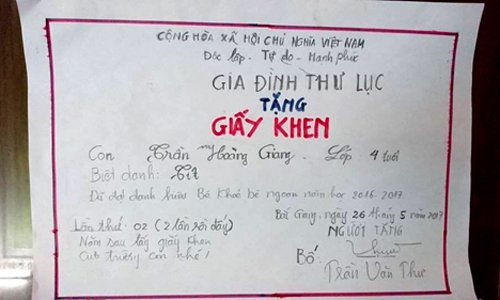 CỘNG HÒA XÃ HỘI CHỦ NGHĨA VIỆT NAM
Độc lập - Tự do - Hạnh phúc
GIA ĐÌNH THƯ LỤC
TẶNG
GIẤY KHEN
Con Trần Hoàng Giang. Lớp 4 tuổi
Biệt danh: Tít
Đã đạt danh hiệu Bé Khoẻ bé ngoan năm học 2016-2017
Bắc Giang, ngày 26 tháng 5 năm 2017
Lần thứ: 02 (2 lần rồi đấy)
Năm sau lấy giấy khen
của trường con nhé!
NGƯỜI TẶNG
Bố
Trần Văn Thư